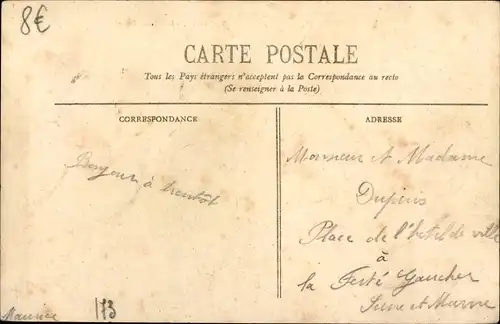 8€
CARTE POSTALE
Tous les Pays étrangers n'acceptent pas la Correspondance au recto
(Se renseigner à la Poste)
CORRESPONDANCE
ADRESSE
Bonjour à bientôt
Monsieur et Madame
Dupuis
Place de l'hotel de ville
à
la Ferté Gaucher
Seine et Marne
Maurice
113